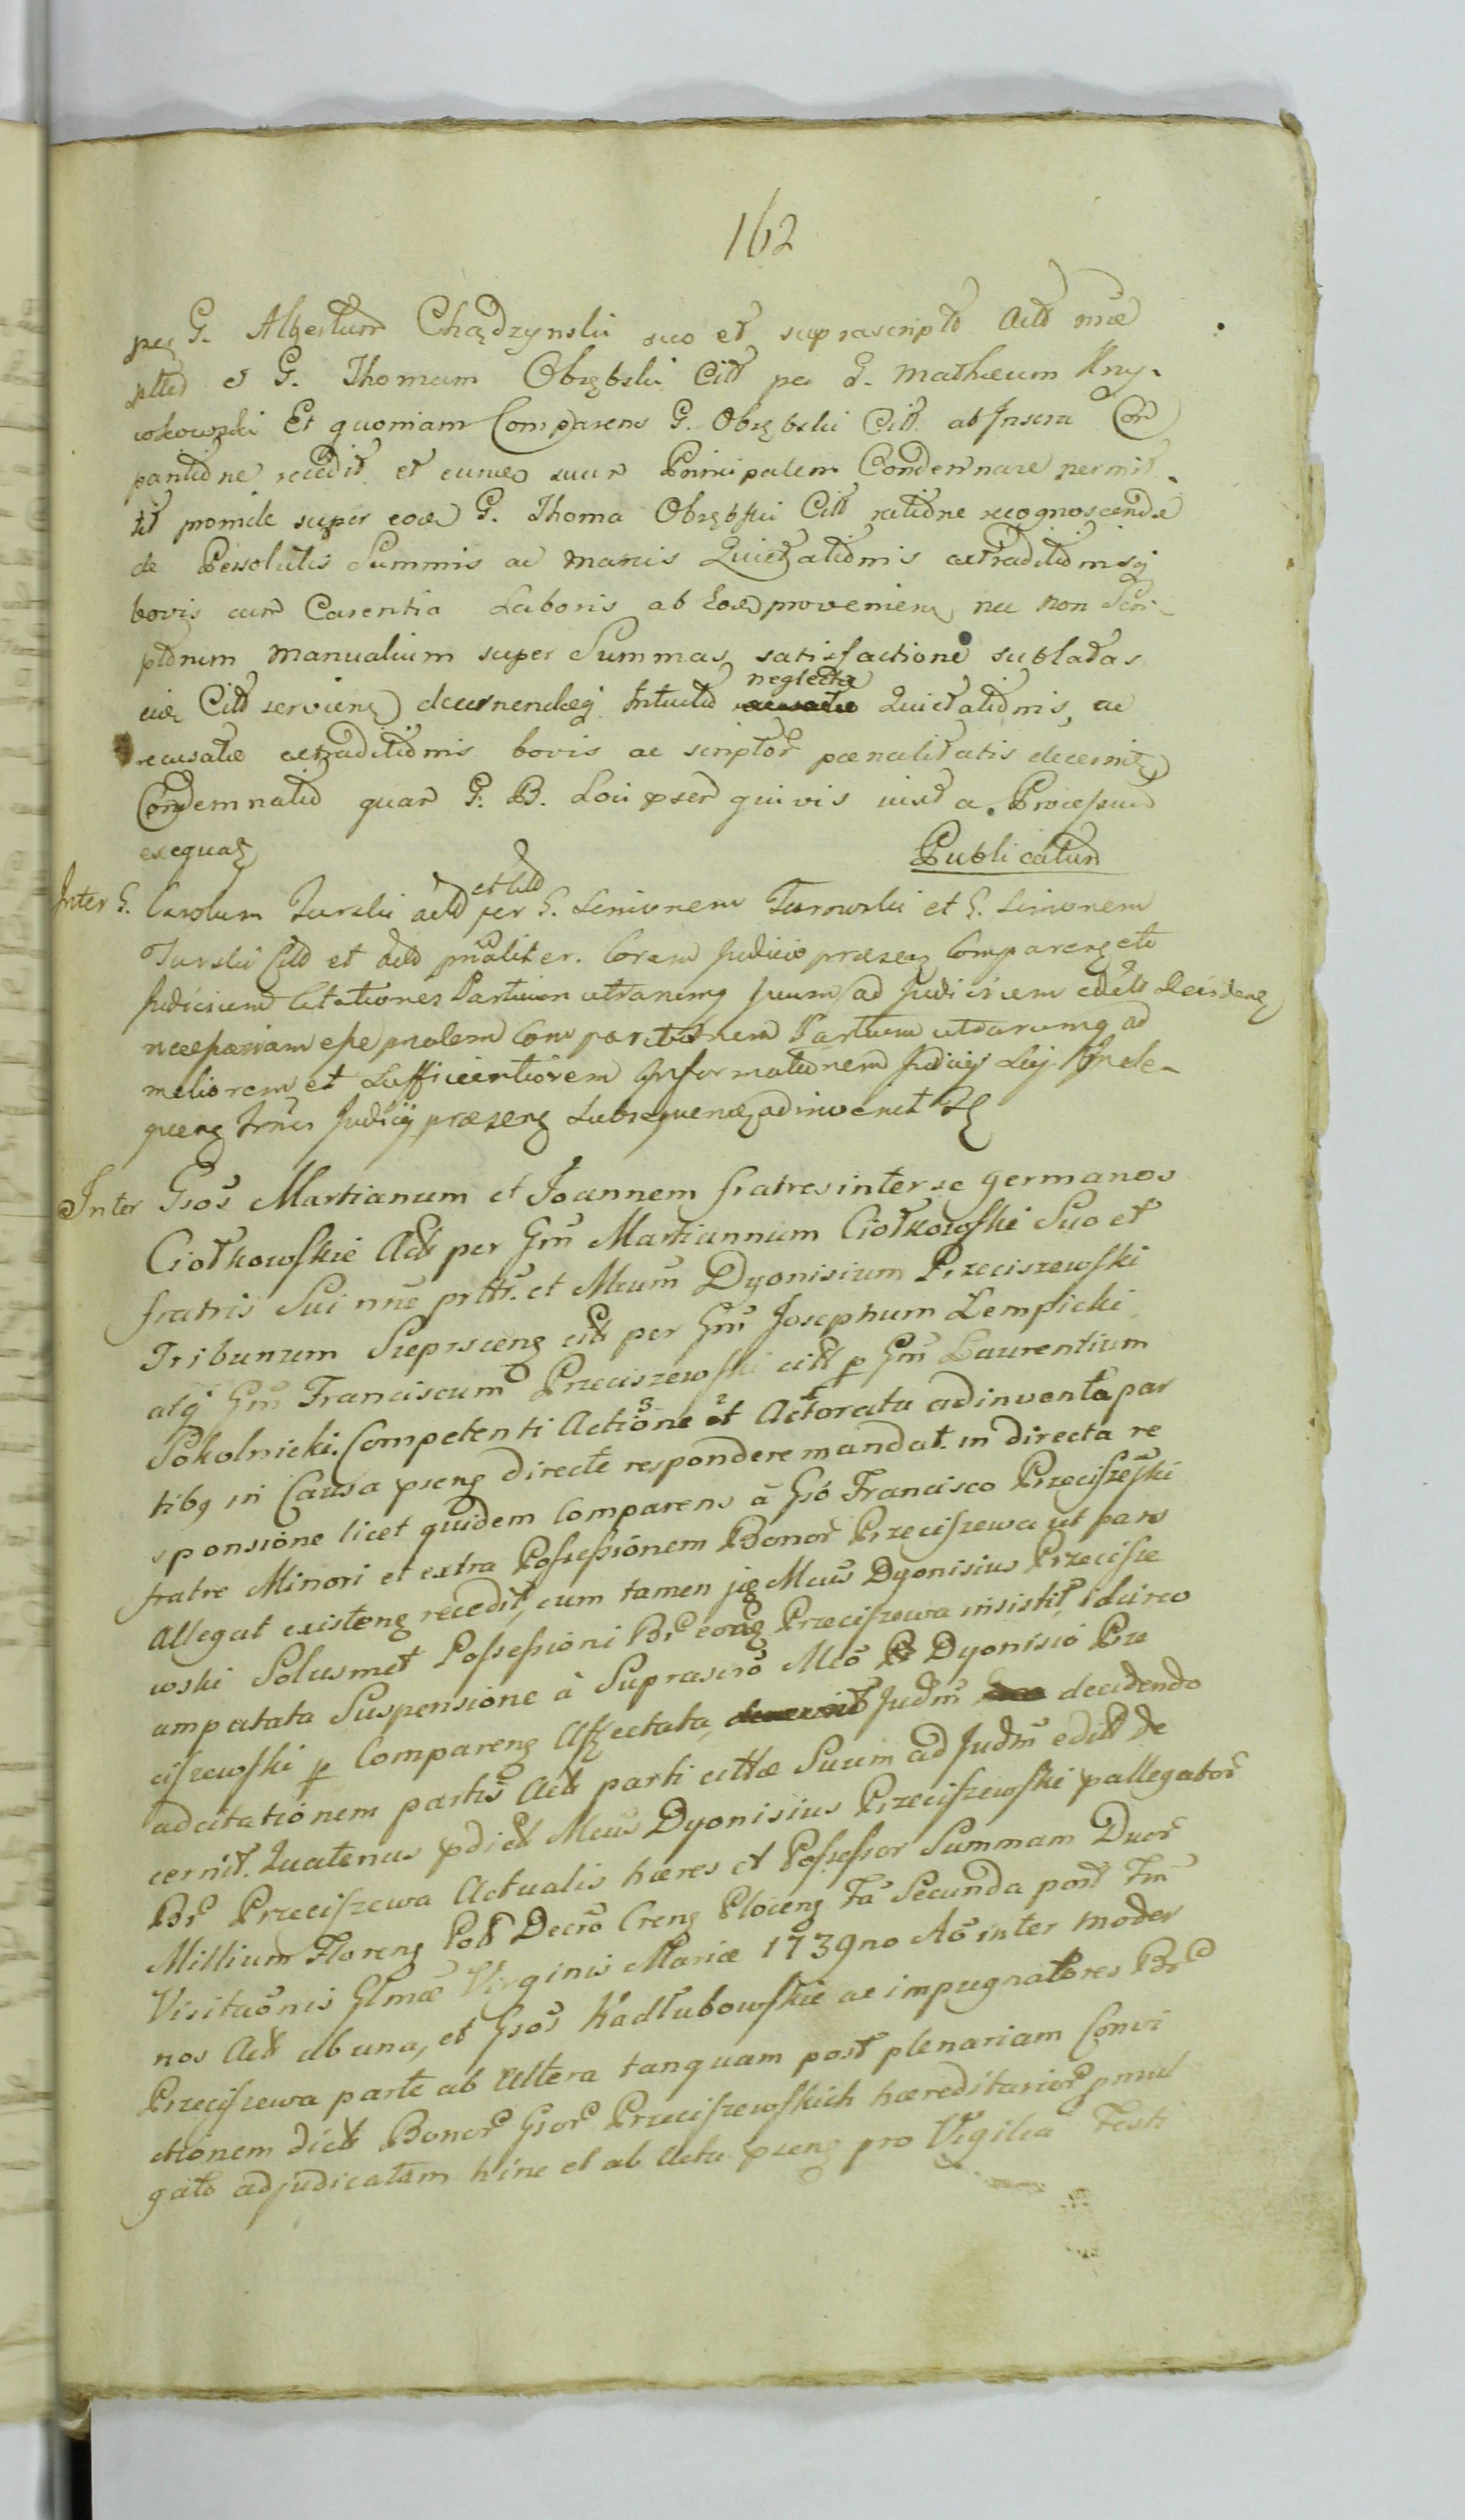 162
per G. Albertum Chądzynski suo et suprascripto Actt nne
pttto et G. Thomam Obrębski Citt per G. Mathæum Kny-
wkowski Et quoniam Comparens G. Obrębski Citt ab Inscra Com
paritione recedit et eumq suum Principalem Condemnare permit-
tit proinde super eod G. Thoma Obrębski Citt ratione recognoscendæ
de Persolutis Summis ac manis Quietationis extraditionisq
bovis cum Carentia Laboris ab Eod proveniens nec non Scri-
ptorum manualium super Summas satisfactione sublatas
eiq Citt serviens decernendæq Intuitu neglectæ Quietationis, ac
recusatæ extraditionis bovis ac scriptor pænalitatis decernit
Condemnatio quam G. B. Loci pser quivis iuxta Processum
exequat
Publicatum
Inter G. Carolum Turski actt et citt per G. Simonem Turowski et G. Simonem
Turski Citt et Actt pnaliter. Coram Judicio præsen Comparens etc
Judicium Citationes Partium utranimq suum ad Judicium edett Decidens
necessariam esse pnalem Comparitionem Partium utdarumq ad
meliorem et Sufficientiorem Informationem Judicij Luj Inde-
quens Trnis Judicij præsens Subsequens adinvenit
Inter Gsos Martianum et Joannem fratres inter se germanos
Ciołkowskie Actt per Gm Martiannum Ciołkowski Suo et
fratris Sui nne pttt. et Mcum Dyonisium Przeciszewski
Tribunum Sieprscens citt per Gm Josephum Łempicki
atq Gm Franciscum Przeciszewski citt p Gm Laurentium
Sokolnicki. Competenti Actione et Actoratu adinventa par
tibq in Causa psens directe respondere mandat. in directa re
sponsione licet quidem Comparens à Gso Francisco Przeciszewski
fratre Minori et extra Possessionem Bonor Przeciszewa ut pars
Allegat existens recedit, cum tamen jq Mcus Dyonisius Przecisze
wski Solusmet Possessioni Br eorq Przeciszewa insistit, idcirco
amputata Suspensione à Suprascro Mco Dyonisio Prze
ciszewski p Comparens Affectata, Judm decidendo
adcitationem partis Actt parti cittæ Suum ad Judm editt de
cernit. Quatenus pdictt Mcus Dyonisius Przeciszewski pallegator
Br Przeciszewa Actualis hæres et Possessor Summam Duor
Millium Florens Pol Decro Crens Plocens Fa Secunda post Fm
Visituonis Glmæ Virginis Mariæ 1739no Ao inter moder
nos Actt ab una, et Gsos Kadłubowskie ac impugnatores Br
Przeciszewa parte ab Altera tanquam post plenariam Convi
ctionem dictt Bonor Gsor Przeciszewskich hæreditarior pmul
gato adjudicatam hinc et ab Actu psens pro Vigilia Festi